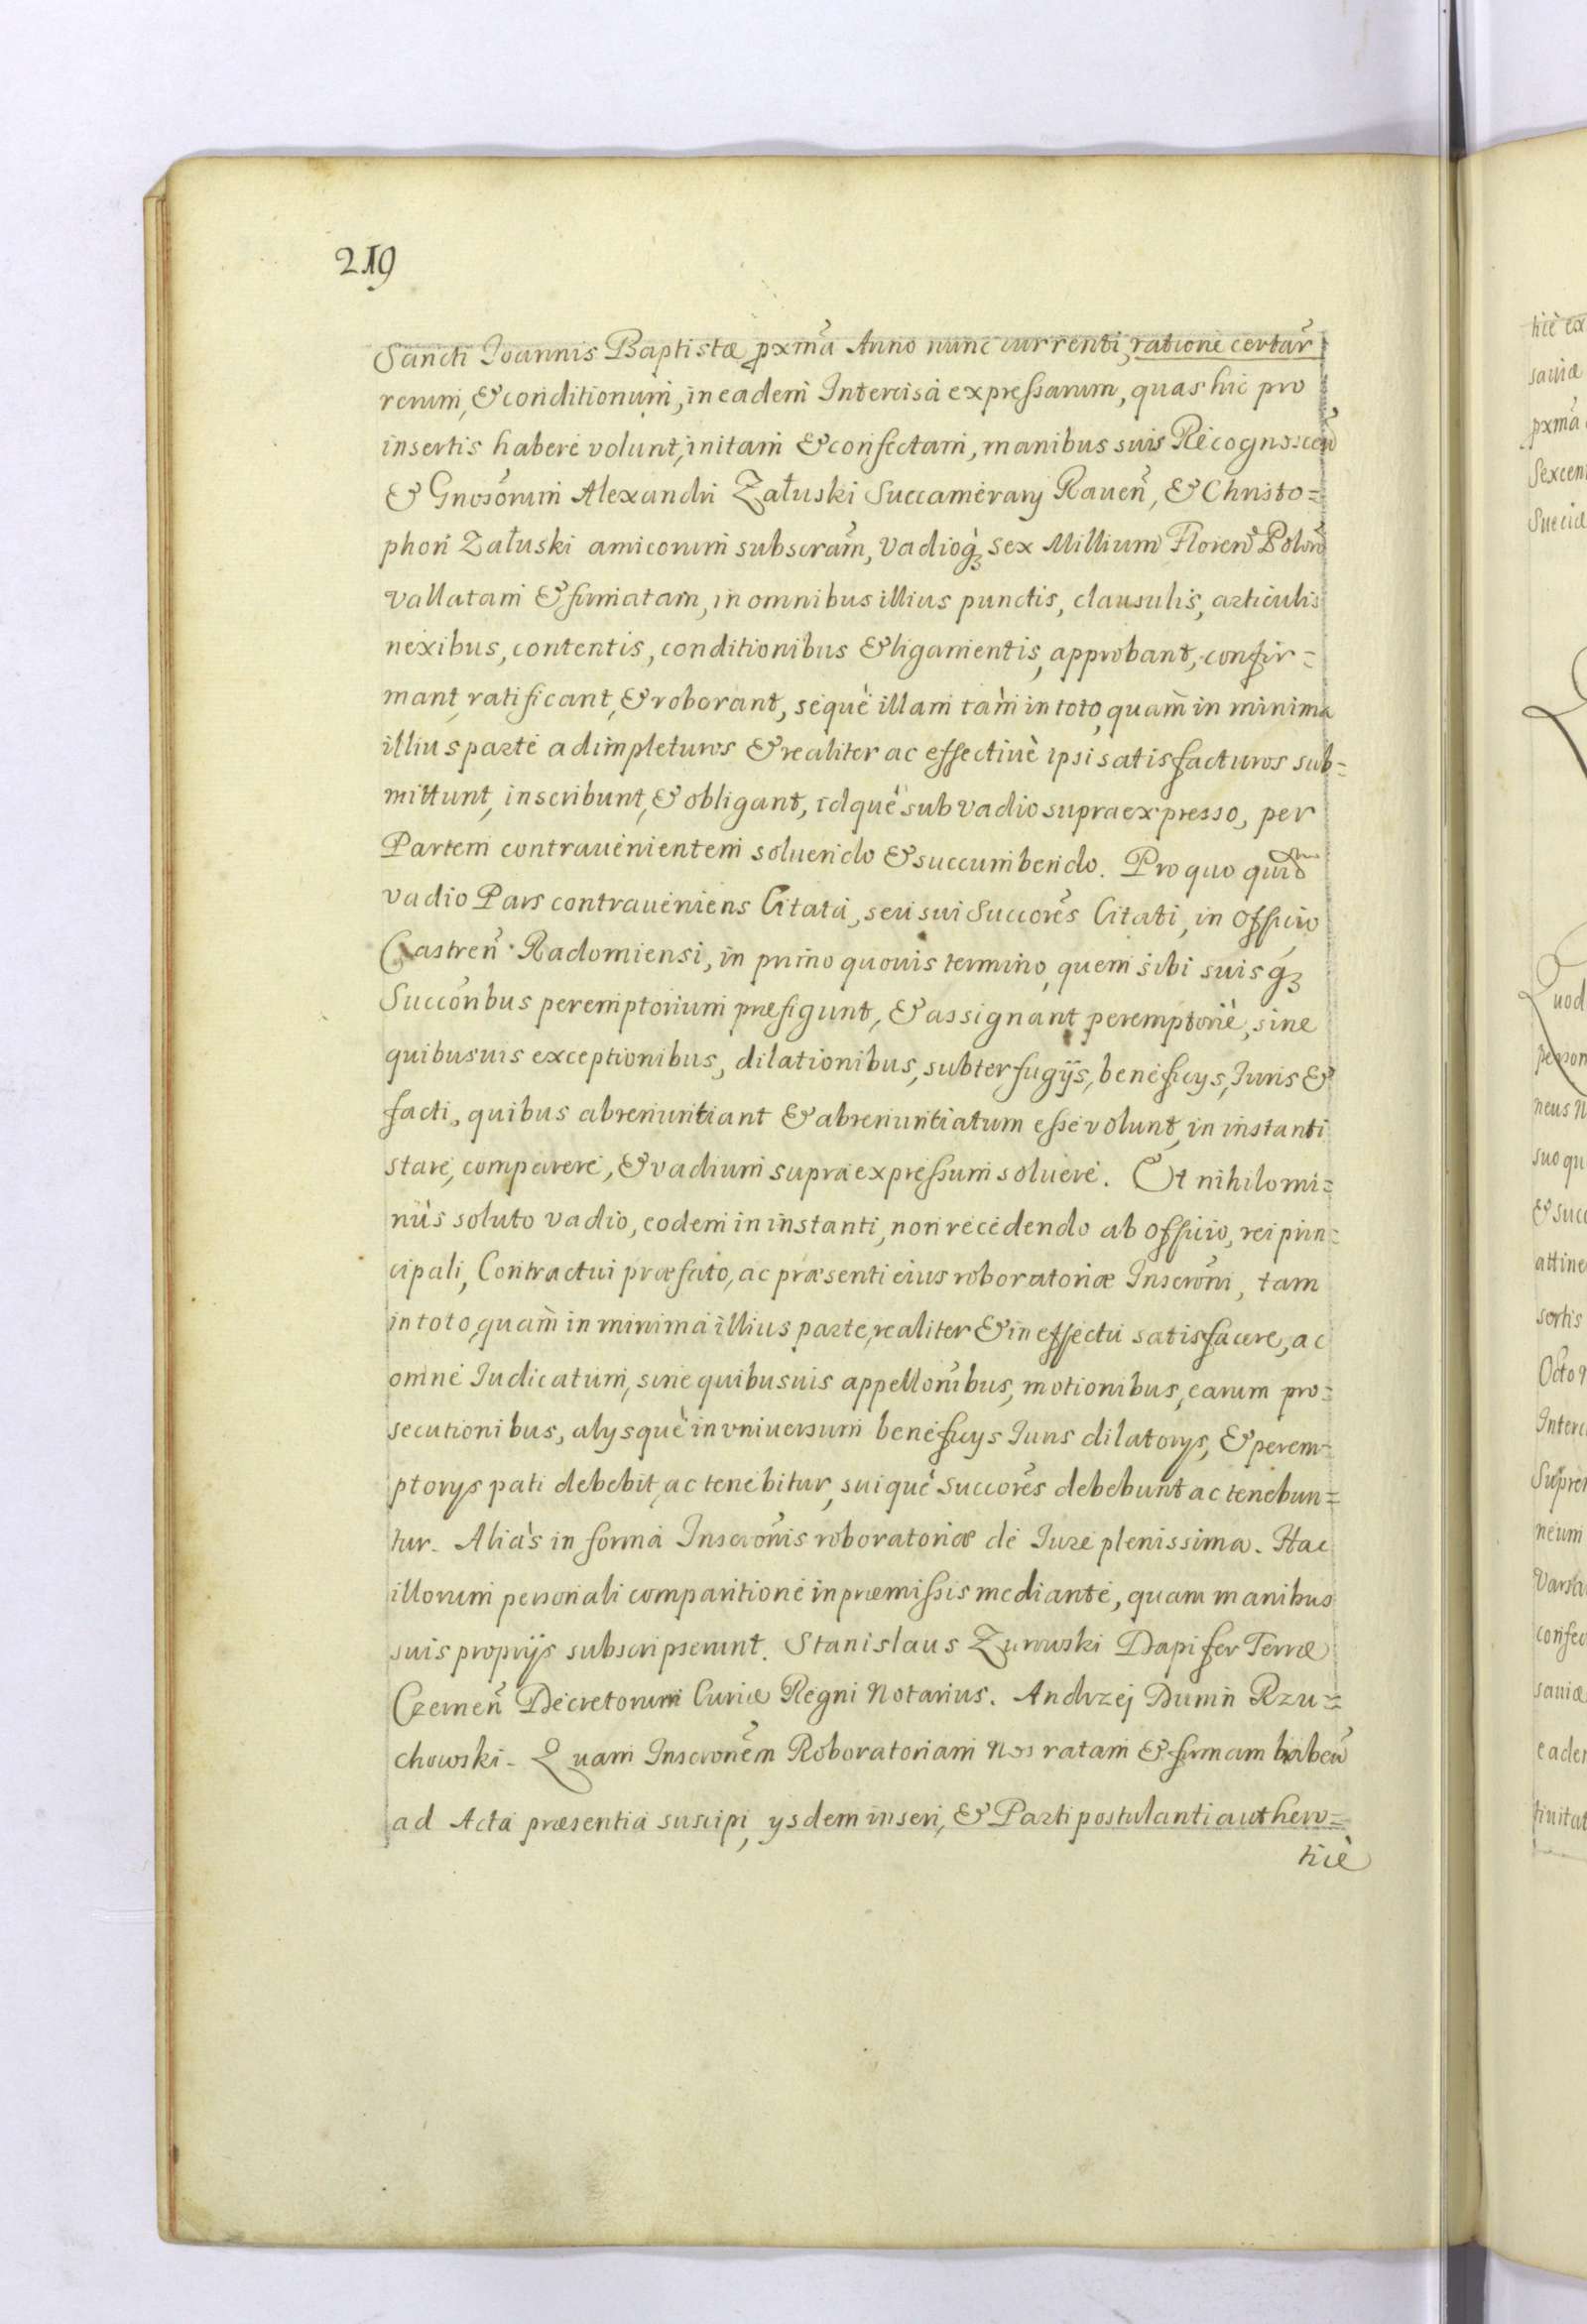 219
Sancti Joannis Baptistæ pxmã Anno nunc currenti, ratione certar̃
rerum, & conditionum, in eadem Intercisa expressarum, quas hic pro
insertis habere volunt, initam & confectam, manibus suis Recognoscen̄
& Gnosõrum Alexandri Załuski Succamerarij Rauen̄, & Christo=
phori Załuski amicorum subscrãm, Vadioq́ʒ sex Millium Floren̄ Polon̄
vallatam & firmatam, in omnibus illius punctis, clausulis, articulis
nexibus, contentis, conditionibus & ligamentis, approbant, confir=
mant, ratificant, & roborant, sequè illam tàm in toto, quam̀ in minima
illius parte adimpleturos & realiter ac effectiuè ipsi satisfacturos sub=
mittunt, inscribunt, & obligant, idquè sub vadio supraexpresso, per
Partem contrauenientem soluendo & succumbendo. Pro quo quid̃
vadio Pars contraueniens Citata, seu sui Succorẽs Citati, in Officio
Castren̄ Radomiensi, in primo quouis termino, quem sibi suisq́ʒ
Succorĩbus peremptorium præfigunt, & assignant peremptoriè, sine
quibusuis exceptionibus, dilationibus, subterfugijs, beneficijs, Iuris &
facti, quibus abrenuntiant & abrenuntiatum esse volunt, in instanti
stare, comparere, & vadium supraexpressum soluere. Et nihilomi=
nùs soluto vadio, eodem in instanti, non recedendo ab Officio, rei prin=
cipali, Contractui præfato, ac præsenti eius roboratoriæ Inscrõni, tam
in toto, quam̀ in minima illius parte, realiter & in effectu satisfacere, ac
omne Iudicatum, sine quibusuis appellonĩbus, motionibus, earum pro=
secutionibus, alijsquè in vniuersum beneficijs Iuris dilatorijs, & perem=
ptorijs pati debebit, ac tenebitur, suiquè Succorẽs debebunt ac tenebun=
tur. Aliàs in forma Inscrõnis roboratoriæ de Iure plenissima. Hac
illorum personali comparitione in præmissis mediante, quam manibus
suis proprijs subscripserunt. Stanislaus Zurowski Dapifer Terræ
Czernen̄ Decretorum Curiæ Regni Notarius. Andrzej Dunin Rzu=
chowski. Quam Inscronẽm Roboratoriam Nos ratam & firmam haben̄
ad Acta præsentia suscipi, ysdem inseri, & Parti postulanti authen=
ticè